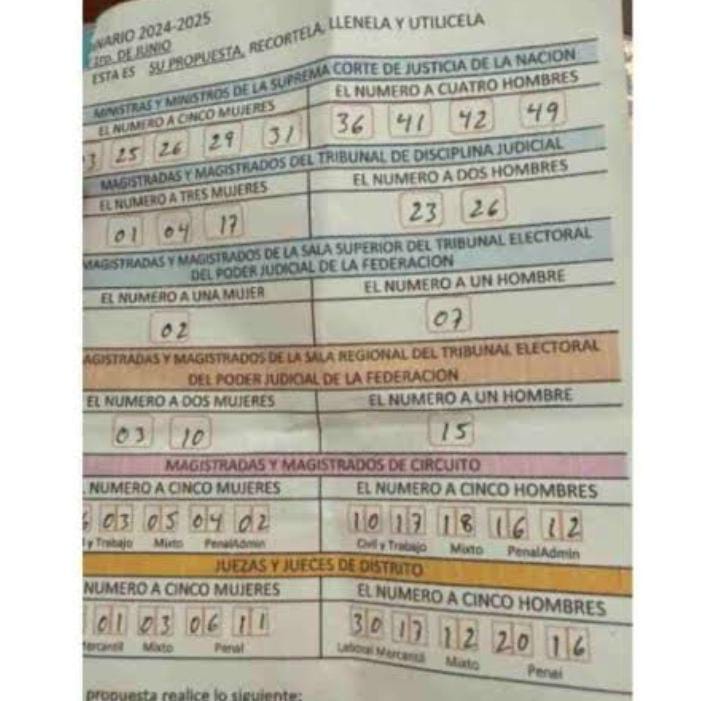 NARIO 2024-2025
1ro. DE JUNIO
ESTA ES SU PROPUESTA, RECORTELA, LLENELA Y UTILICELA
MINISTRAS Y MINISTROS DE LA SUPREMA CORTE DE JUSTICIA DE LA NACION
EL NUMERO A CINCO MUJERES EL NUMERO A CUATRO HOMBRES
3 25 26 29 31 36 41 42 49
MAGISTRADAS Y MAGISTRADOS DEL TRIBUNAL DE DISCIPLINA JUDICIAL
EL NUMERO A TRES MUJERES EL NUMERO A DOS HOMBRES
01 04 17 23 26
MAGISTRADAS Y MAGISTRADOS DE LA SALA SUPERIOR DEL TRIBUNAL ELECTORAL
DEL PODER JUDICIAL DE LA FEDERACION
EL NUMERO A UNA MUJER EL NUMERO A UN HOMBRE
02 07
AGISTRADAS Y MAGISTRADOS DE LA SALA REGIONAL DEL TRIBUNAL ELECTORAL
DEL PODER JUDICIAL DE LA FEDERACION
EL NUMERO A DOS MUJERES EL NUMERO A UN HOMBRE
03 10 15
MAGISTRADAS Y MAGISTRADOS DE CIRCUITO
NUMERO A CINCO MUJERES EL NUMERO A CINCO HOMBRES
03 05 04 02 10 17 18 16 12
l y Trabajo Mixto PenalAdmin Civil y Trabajo Mixto PenalAdmin
JUEZAS Y JUECES DE DISTRITO
NUMERO A CINCO MUJERES EL NUMERO A CINCO HOMBRES
01 03 06 11 30 17 12 20 16
Mercantil Mixto Penal Laboral Mercantil Mixto Penal
propuesta realice lo siguiente: